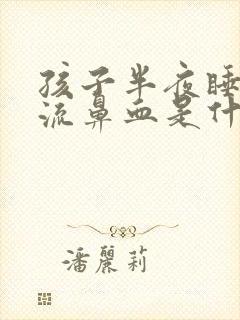 孩子半夜睡
流鼻血是什
潘麗莉